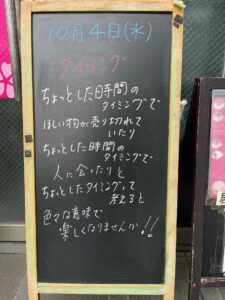 10月4日(水)
タイミング
ちょっとした時間の
タイミングで
ほしい物が売り切れて
いたり
ちょっとした時間の
タイミングで
人に会ったりと
ちょっとしたタイミングって
考えると
色々な意味で
楽しくなりませんか!!